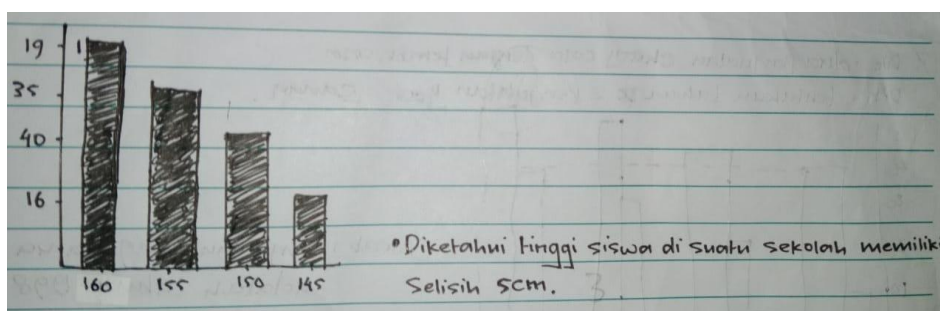 19
35
40
16
160 155 150 145
• Diketahui tinggi siswa di suatu sekolah memilik
Selisih 5cm.